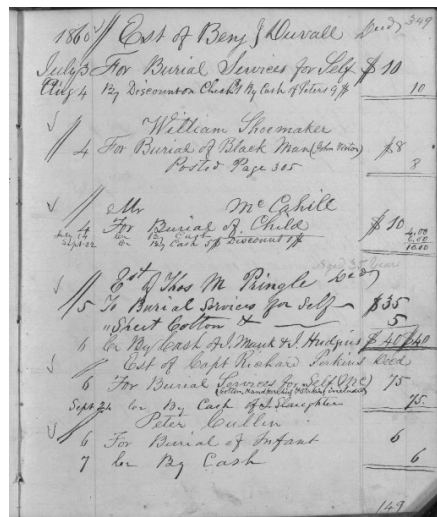 349
1865 Est of Benj J Duvall Decd
July 3 For Burial Services for Self $10
Aug 4 By Discount on Check $1 By Cash of Peters 9 10
William Shoemaker
4 For Burial of Black Man (John Victor) $8
Posted Page 305 8
Mr McCahill
4 For Burial of Child $10
July 14 Cr By Cash 4.00
Sept 22 Cr By Cash 5 Discount 1 6.00
10.00
Aged 35 Years
Est of Thos M Pringle Decd
5 To Burial Services for Self $35
" Shirt Cotton & 5
6 Cr By Cash J. Mauk & J. Hudgins $40 $40
Est of Capt Richard Perkins Decd
6 For Burial Services for Self (McC) 75
(Cotton, Handkerchief & Stockings Included)
Sept 24 Cr By Cash of J Slaughter 75.
Peter Cullin
6 For Burial of Infant 6
7 Cr By Cash 6
149